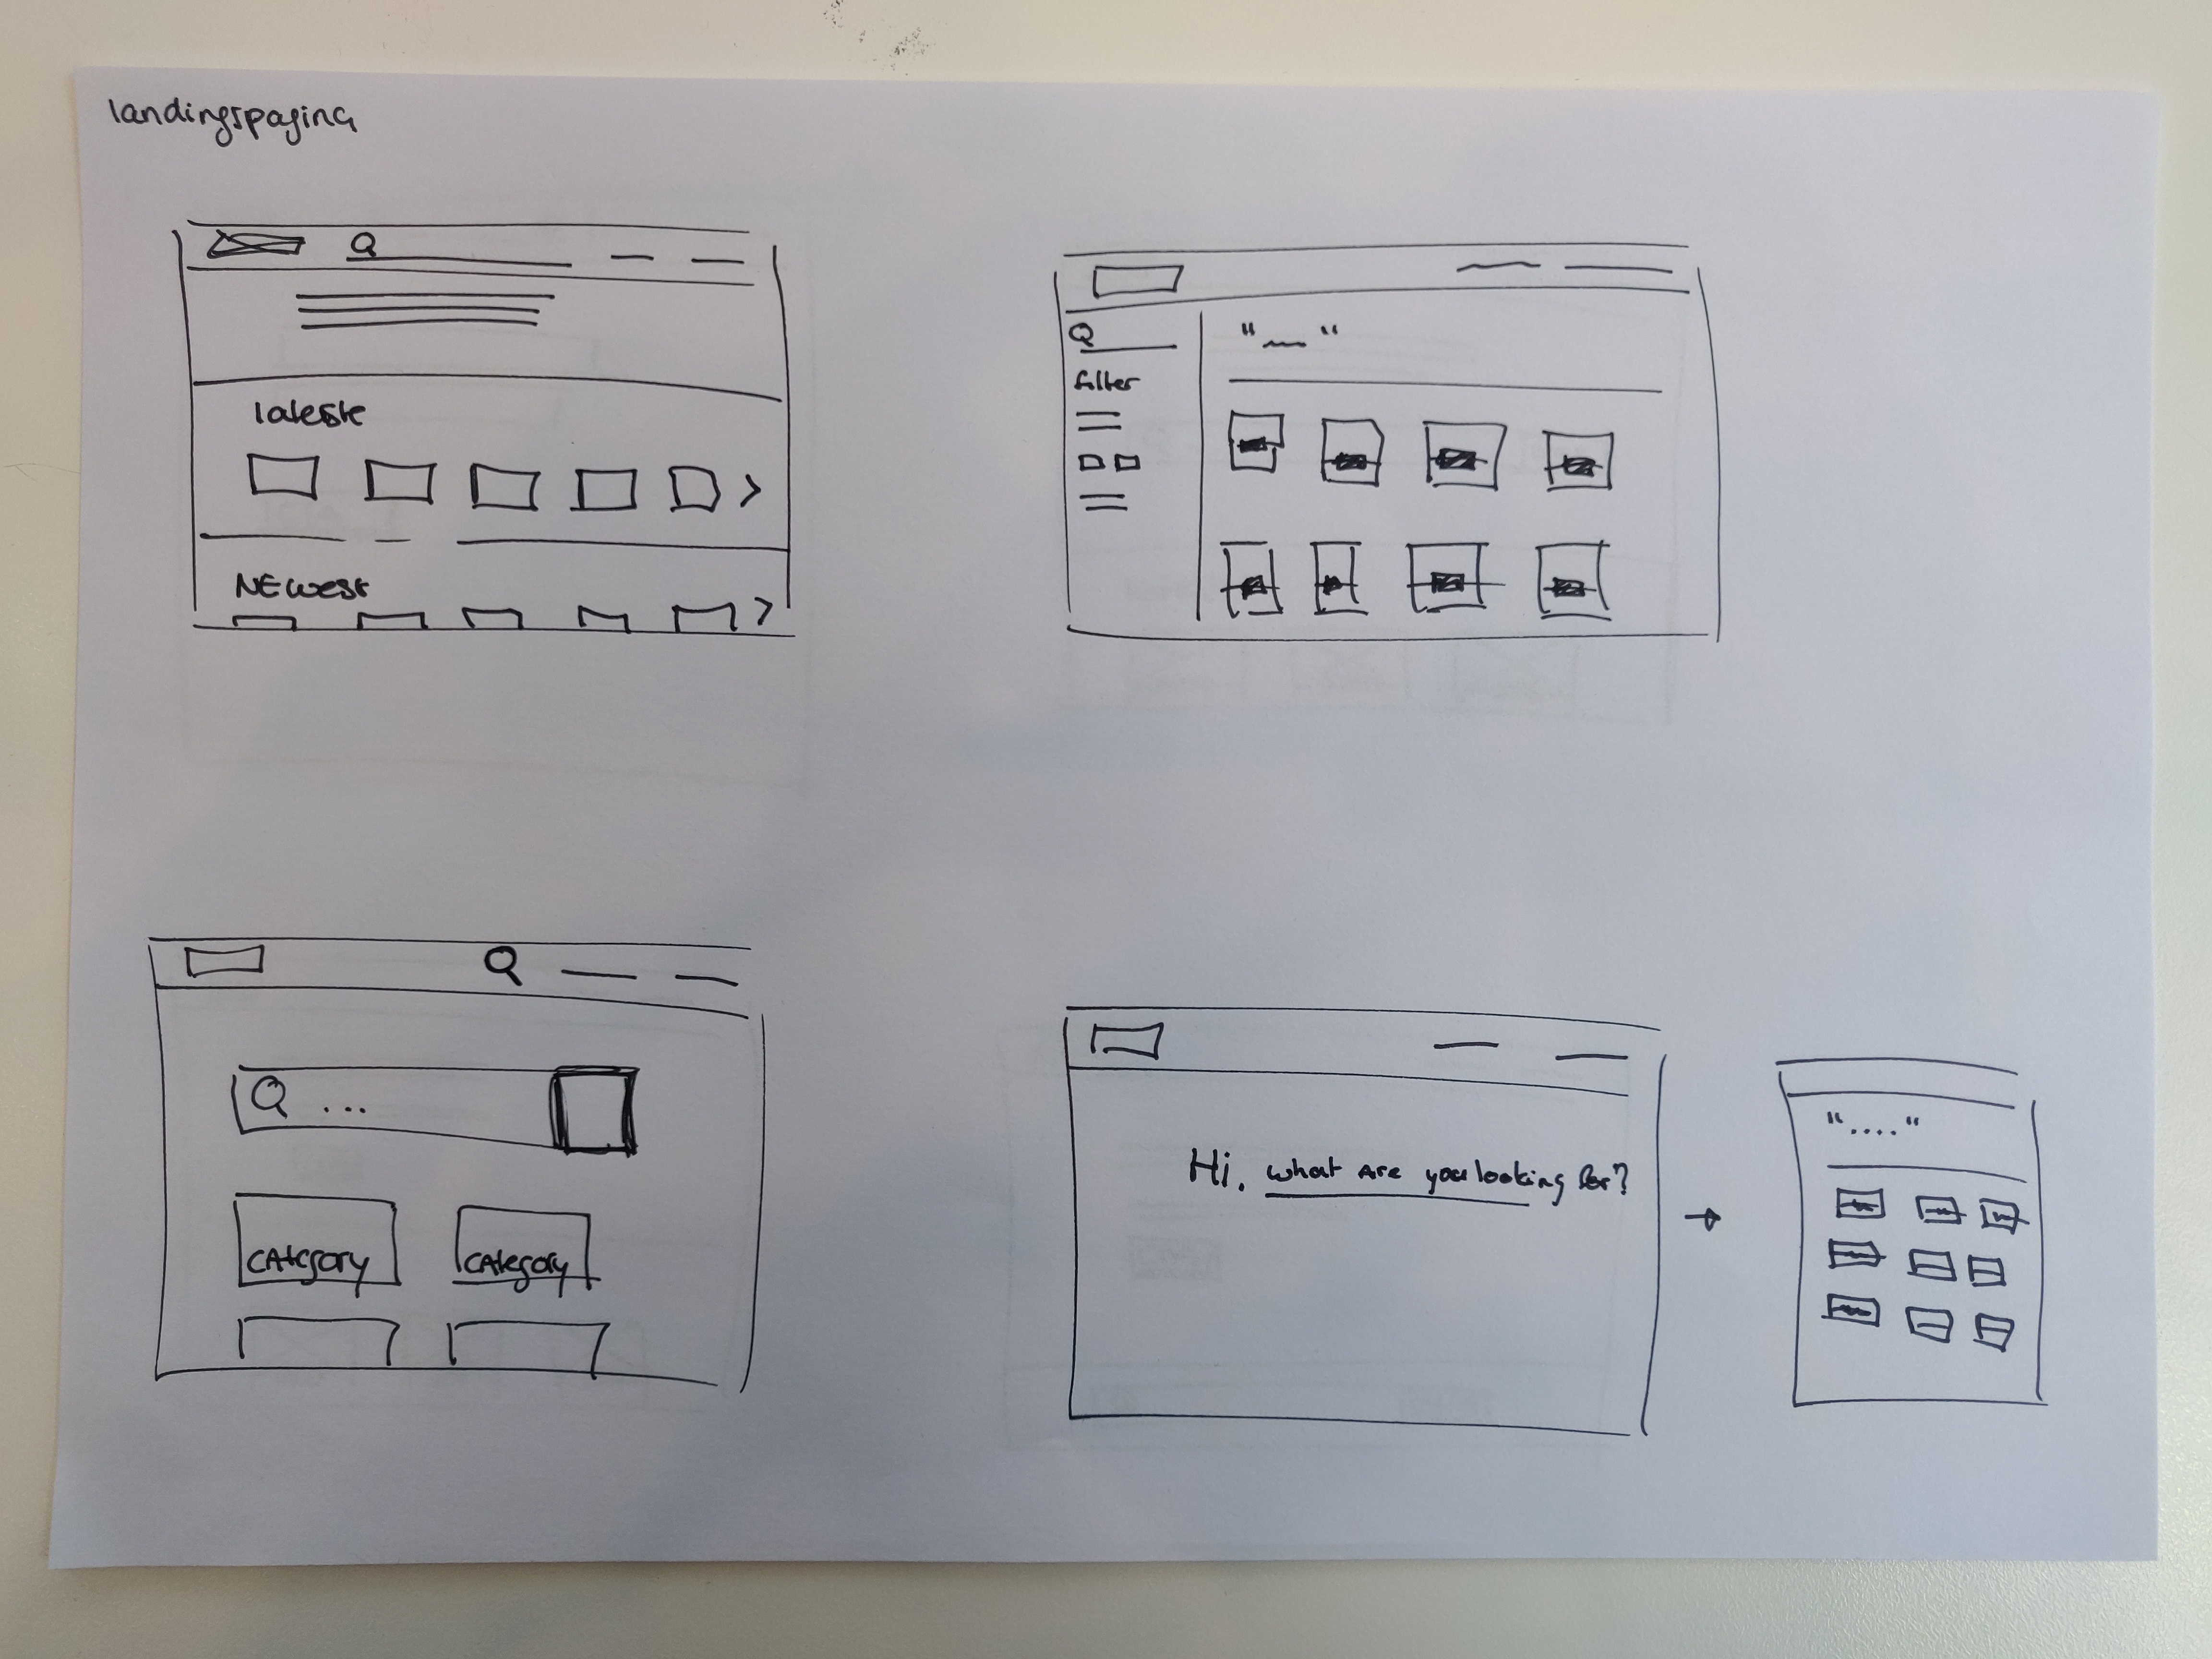 landingspagina
lateste
NEwest
filter
CAtegory
CAtegory
Hi. what are you looking for?
"...."